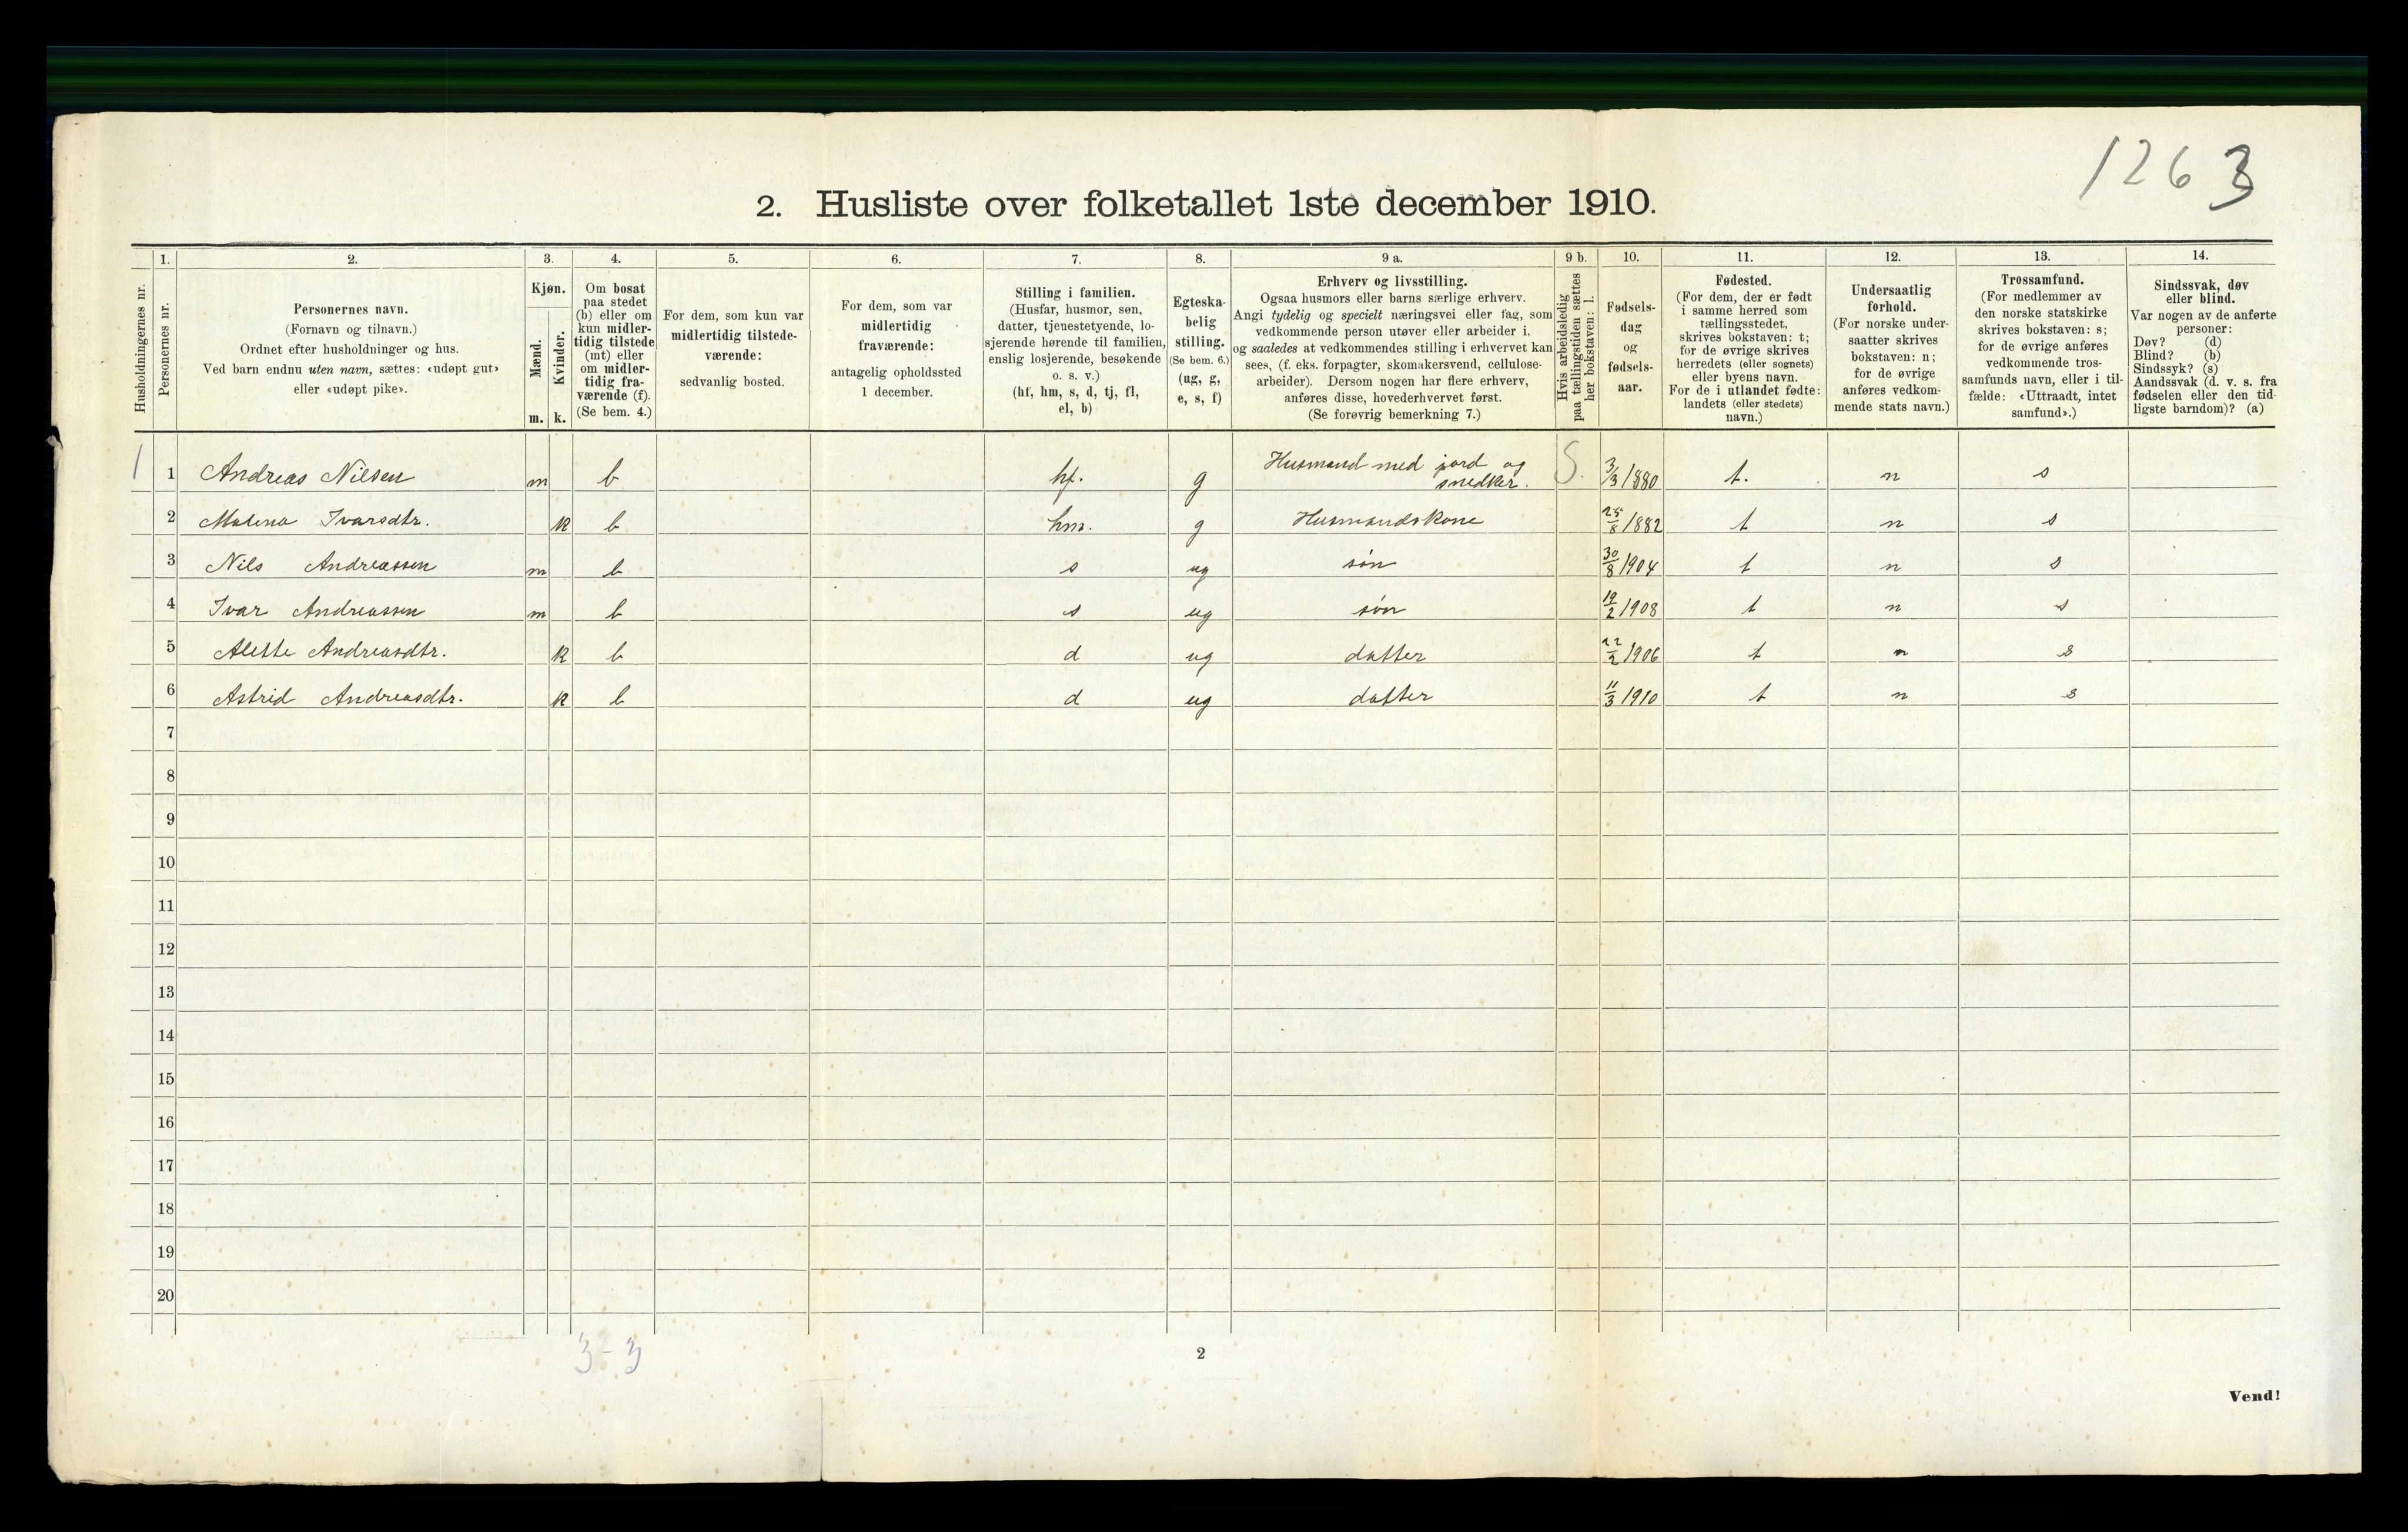 1263
2. Husliste over folketallet 1ste december 1910.
Husholdningernes nr.
1.
Personernes nr.
2.
Personernes navn.
(Fornavn og tilnavn.)
Ordnet efter husholdninger og hus.
Ved barn endnu uten navn, sættes: «udøpt gut»
eller «udøpt pike».
3.
Kjøn.
Mænd.
m.
Kvinder.
k.
4.
Om bosat
paa stedet
(b) eller om
kun midler-
tidig tilstede
(mt) eller
om midler-
tidig fra-
værende (f).
(Se bem. 4.)
5.
For dem, som kun var
midlertidig tilstede-
værende:
sedvanlig bosted.
6.
For dem, som var
midlertidig
fraværende:
antagelig opholdssted
1 december.
7.
Stilling i familien.
(Husfar, husmor, søn,
datter, tjenestetyende, lo-
sjerende hørende til familien,
enslig losjerende, besøkende
o. s. v.)
(hf, hm, s, d, tj, fl,
el, b)
8.
Egteska-
belig
stilling.
(Se bem. 6.)
(ug, g,
e, s, f)
9 a.
Erhverv og livsstilling.
Ogsaa husmors eller barns særlige erhverv.
Angi tydelig og specielt næringsvei eller fag, som
vedkommende person utøver eller arbeider i,
og saaledes at vedkommendes stilling i erhvervet kan
sees, (f. eks. forpagter, skomakersvend, cellulose-
arbeider). Dersom nogen har flere erhverv,
anføres disse, hovederhvervet først.
(Se forøvrig bemerkning 7.)
9 b.
Hvis arbeidsledig
paa tællingstiden sættes
her bokstaven: l.
10.
Fødsels-
dag
og
fødsels-
aar.
11.
Fødested.
(For dem, der er født
i samme herred som
tællingsstedet,
skrives bokstaven: t;
for de øvrige skrives
herredets (eller sognets)
eller byens navn.
For de i utlandet fødte:
landets (eller stedets)
navn.)
12.
Undersaatlig
forhold.
(For norske under-
saatter skrives
bokstaven: n;
for de øvrige
anføres vedkom-
mende stats navn.)
13.
Trossamfund.
(For medlemmer av
den norske statskirke
skrives bokstaven: s;
for de øvrige anføres
vedkommende tros-
samfunds navn, eller i til-
fælde: «Uttraadt, intet
samfund».)
14.
Sindssvak, døv
eller blind.
Var nogen av de anførte
personer:
Døv? (d)
Blind? (b)
Sindssyk? (s)
Aandssvak (d. v. s. fra
fødselen eller den tid-
ligste barndom)? (a)
1 1 Andreas Nilsen m b hf. g Husmand med jord og snedker. S. 3/3 1880 t. n s
2 Malena Ivarsdtr. k b hm. g Husmandskone 25/8 1882 t n s
3 Nils Andreassen m b s ug søn 30/8 1904 t n s
4 Ivar Andreassen m b s ug søn 19/2 1908 t n s
5 Alette Andreasdtr. k b d ug datter 22/2 1906 t n s
6 Astrid Andreasdtr. k b d ug datter 11/3 1910 t n s
7
8
9
10
11
12
13
14
15
16
17
18
19
20
3-3
2
Vend!